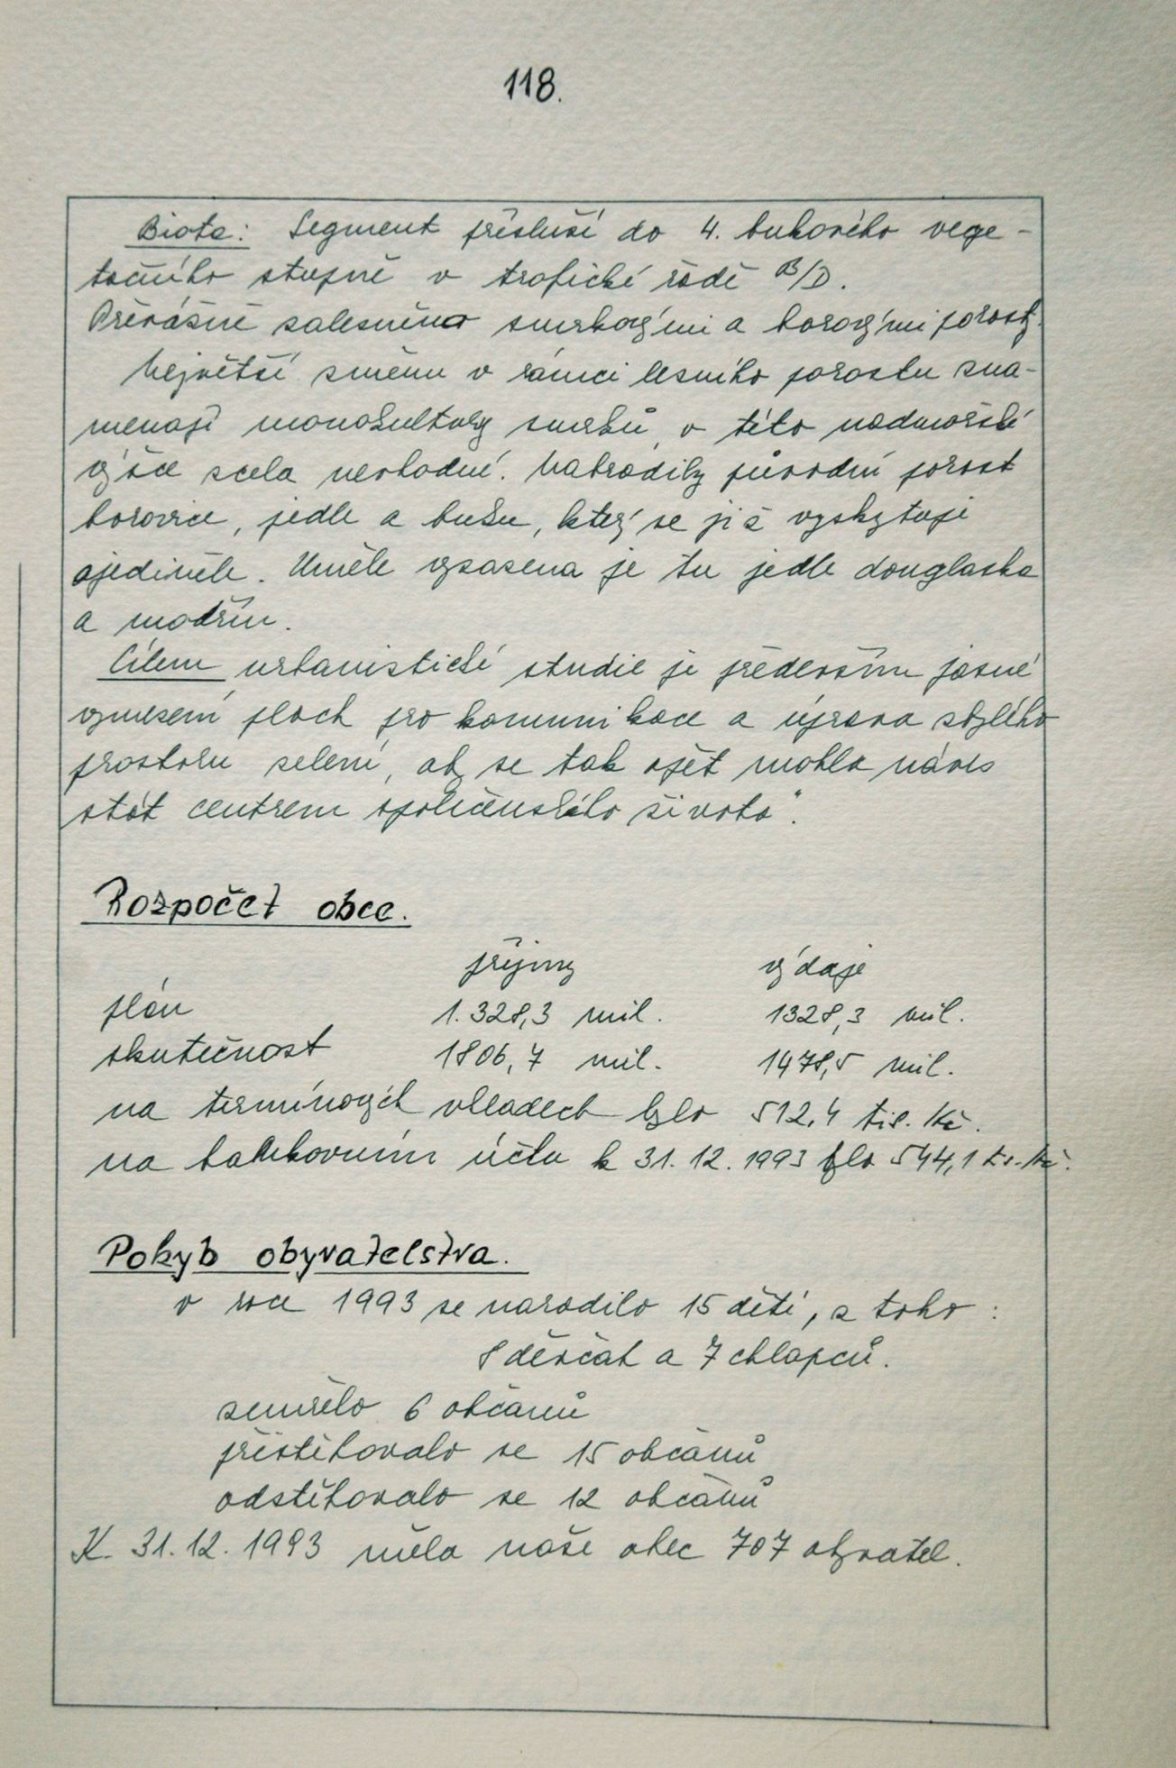 118.
Biota: Segment přísluší do 4. bukového vege-
tačního stupně v trofické řadě B/D.
Převážně zalesněna smrkovými a borovými porosty.
Největší změnu v rámci lesního porostu zna-
menají monokultury smrků, v této nadmořské
výšce zcela nevhodné. Nahradily původní porost
borovice, jedle a buku, který se již vyskytuje
ojediněle. Uměle vysazena je tu jedle douglaska
a modřín.
Cílem urbanistické studie je především jasné
vymezení ploch pro komunikace a úprava zbylého
prostoru zelení, aby se tak opět mohla náves
stát centrem společenského života".
Rozpočet obce.
příjmy výdaje
plán 1.328,3 mil. 1328,3 mil.
skutečnost 1806,7 mil. 1478,5 mil.
na termínových vkladech bylo 512,4 tis. Kč.
na bankovním účtu k 31.12.1993 bylo 544,1 ts. Kč.
Pohyb obyvatelstva.
v roce 1993 se narodilo 15 dětí, z toho :
8 děvčat a 7 chlapců.
zemřelo 6 občanů
přistěhovalo se 15 občanů
odstěhovalo se 12 občanů
K. 31.12.1993 měla naše obec 707 obyvatel.